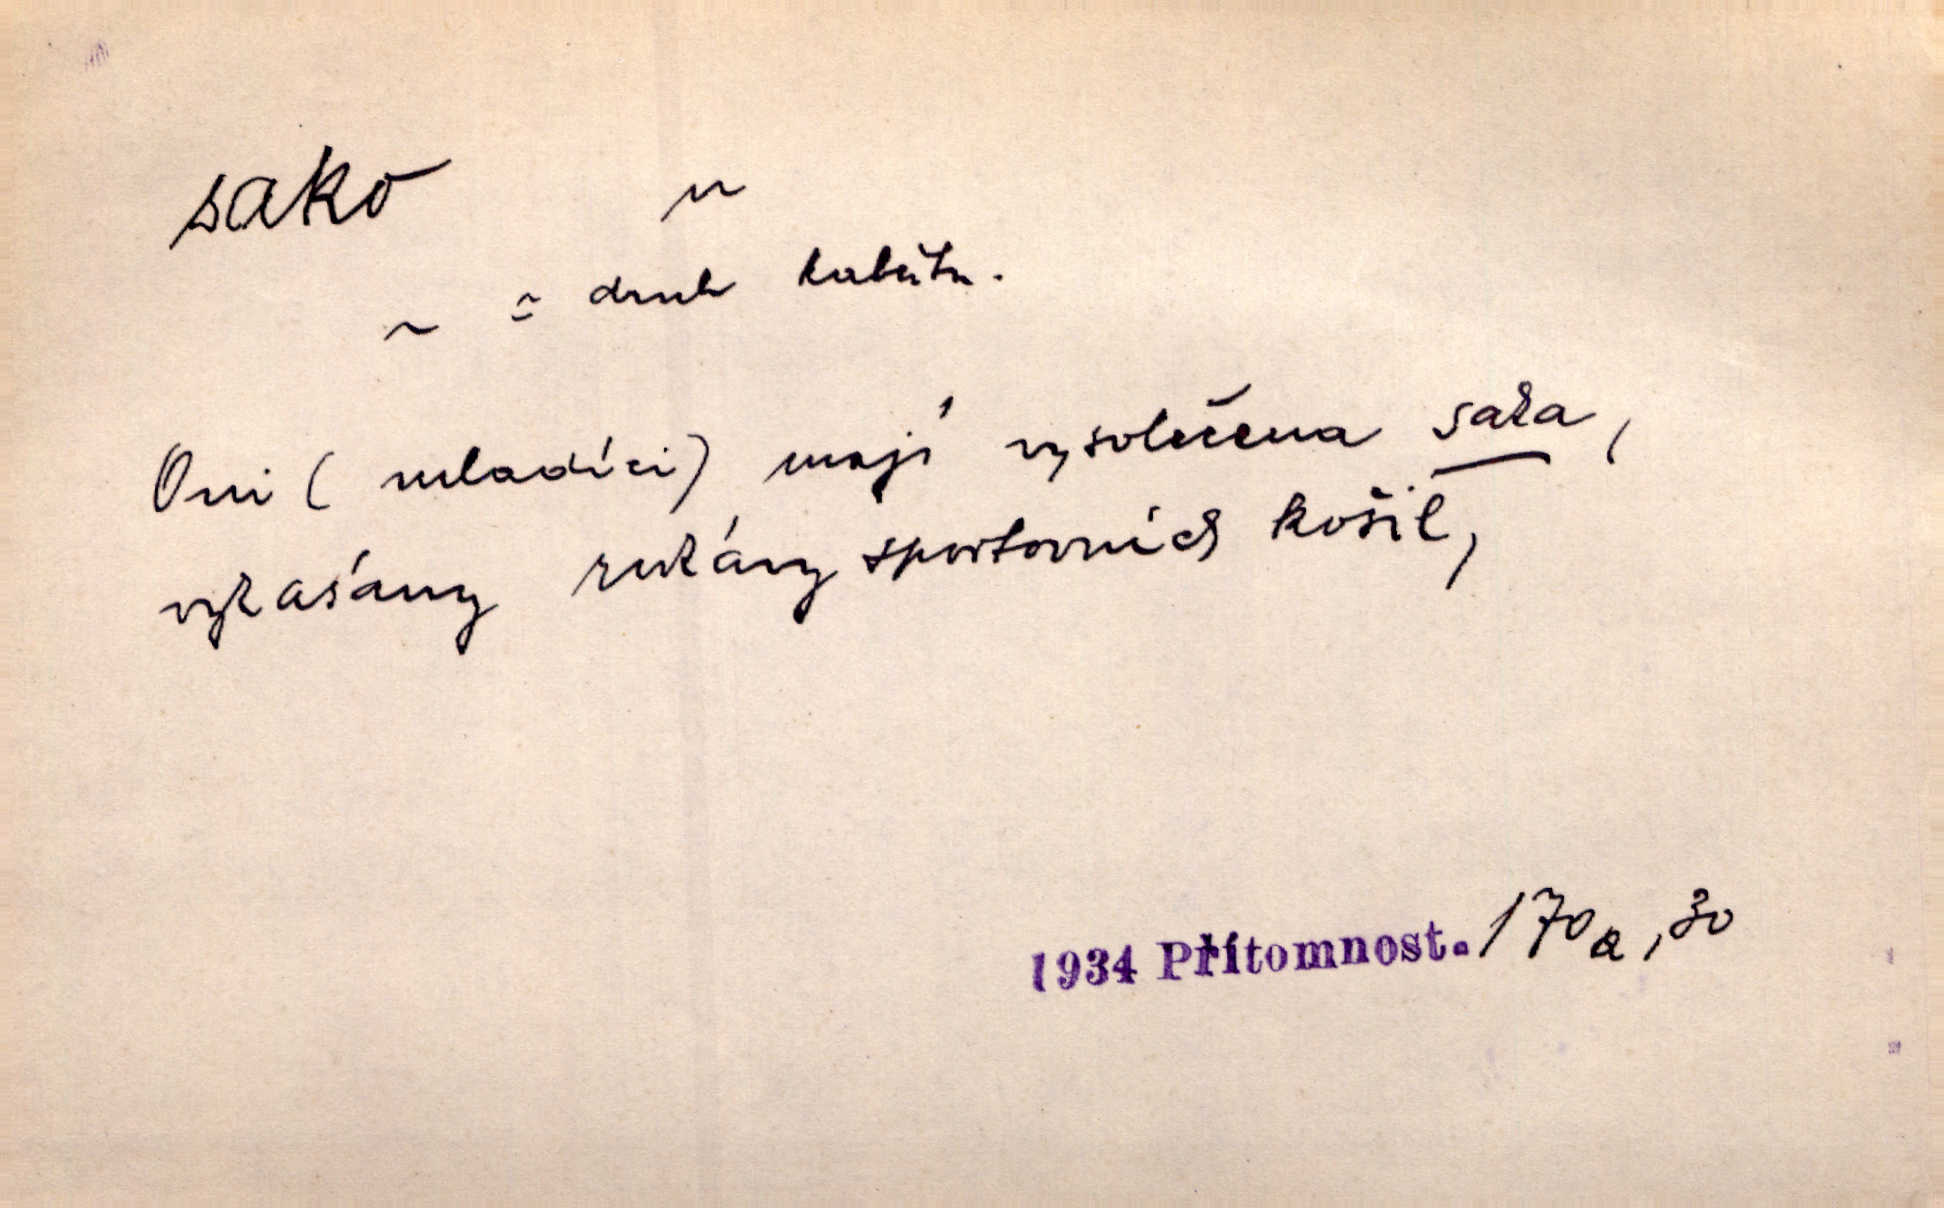 sako ~
~ = druh kabátu.
Oni (mladíci) mají vysvlečena saka,
vykasány rukávy sportovních košil,
1934 Přítomnost. 170a, 30